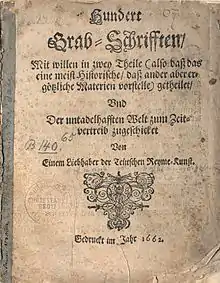 Hundert
Grab-Schrifften/
Mit willen in zwey Theile (also/ daß das
eine meist Historische/ daß ander aber er-
götzliche Materien vorstelle) getheilet/
Und
Der untadelhafften Welt zum Zeit-
vertreib zugeschicket
Von
Einem Liebhaber der Teutschen Reyme-Kunst.
Gedruckt im Jahr 1662.